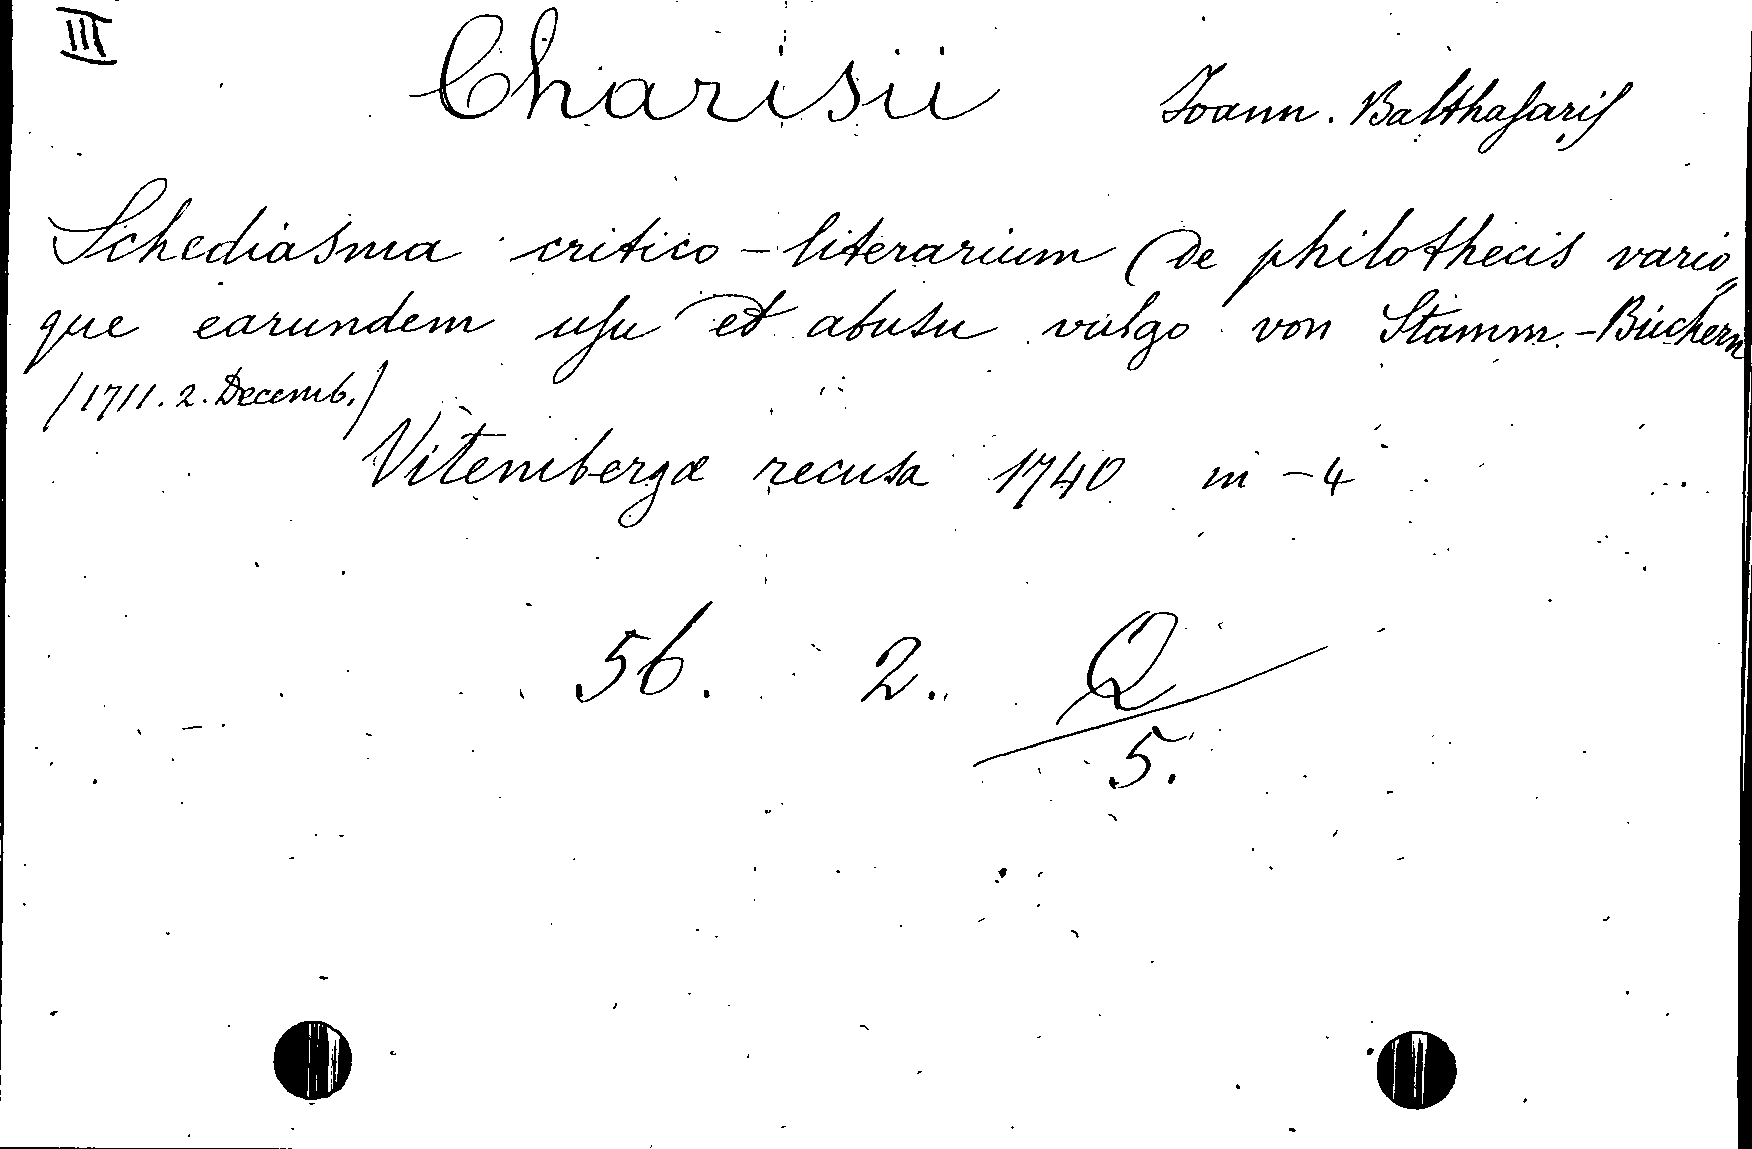 III
Charisii Joann. Balthaſariſ
Schediasma critico-literarium (de philothecis vario„
que earundem uſu et abusu vulgo von Stamm-Büchern
/1711. 2. Decemb./
Vitembergæ recusa 1740 in-4
56. 2. Q
5.